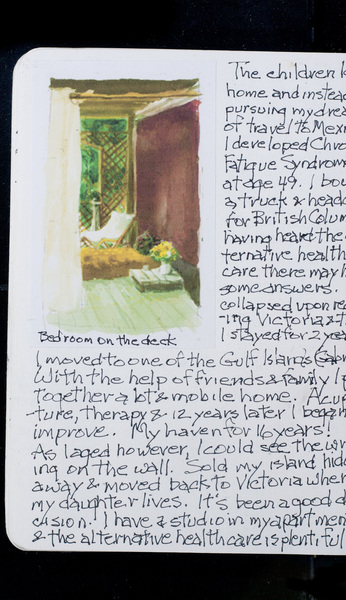 The children
home and instead
pursuing my drea
of travel to Mex
I developed Chro
Fatigue Syndrom
at age 49. I bou
a truck & head
for British Colum
having heard the
ternative health
care there may h
some answers.
collapsed upon rea
-ing Victoria &
I stayed for 2 yea
Bedroom on the deck
I moved to one of the Gulf Islands
With the help of friends & family I
together a lot & mobile home. Acu
ture, therapy & 12 years later I began
improve. My haven for 16 years!
As I aged however, I could see the wr
ing on the wall. Sold my island hid
away & moved back to Victoria wher
my daughter lives. It's been a good d
cision. I have a studio in my apartmen
& the alternative health care is plentiful